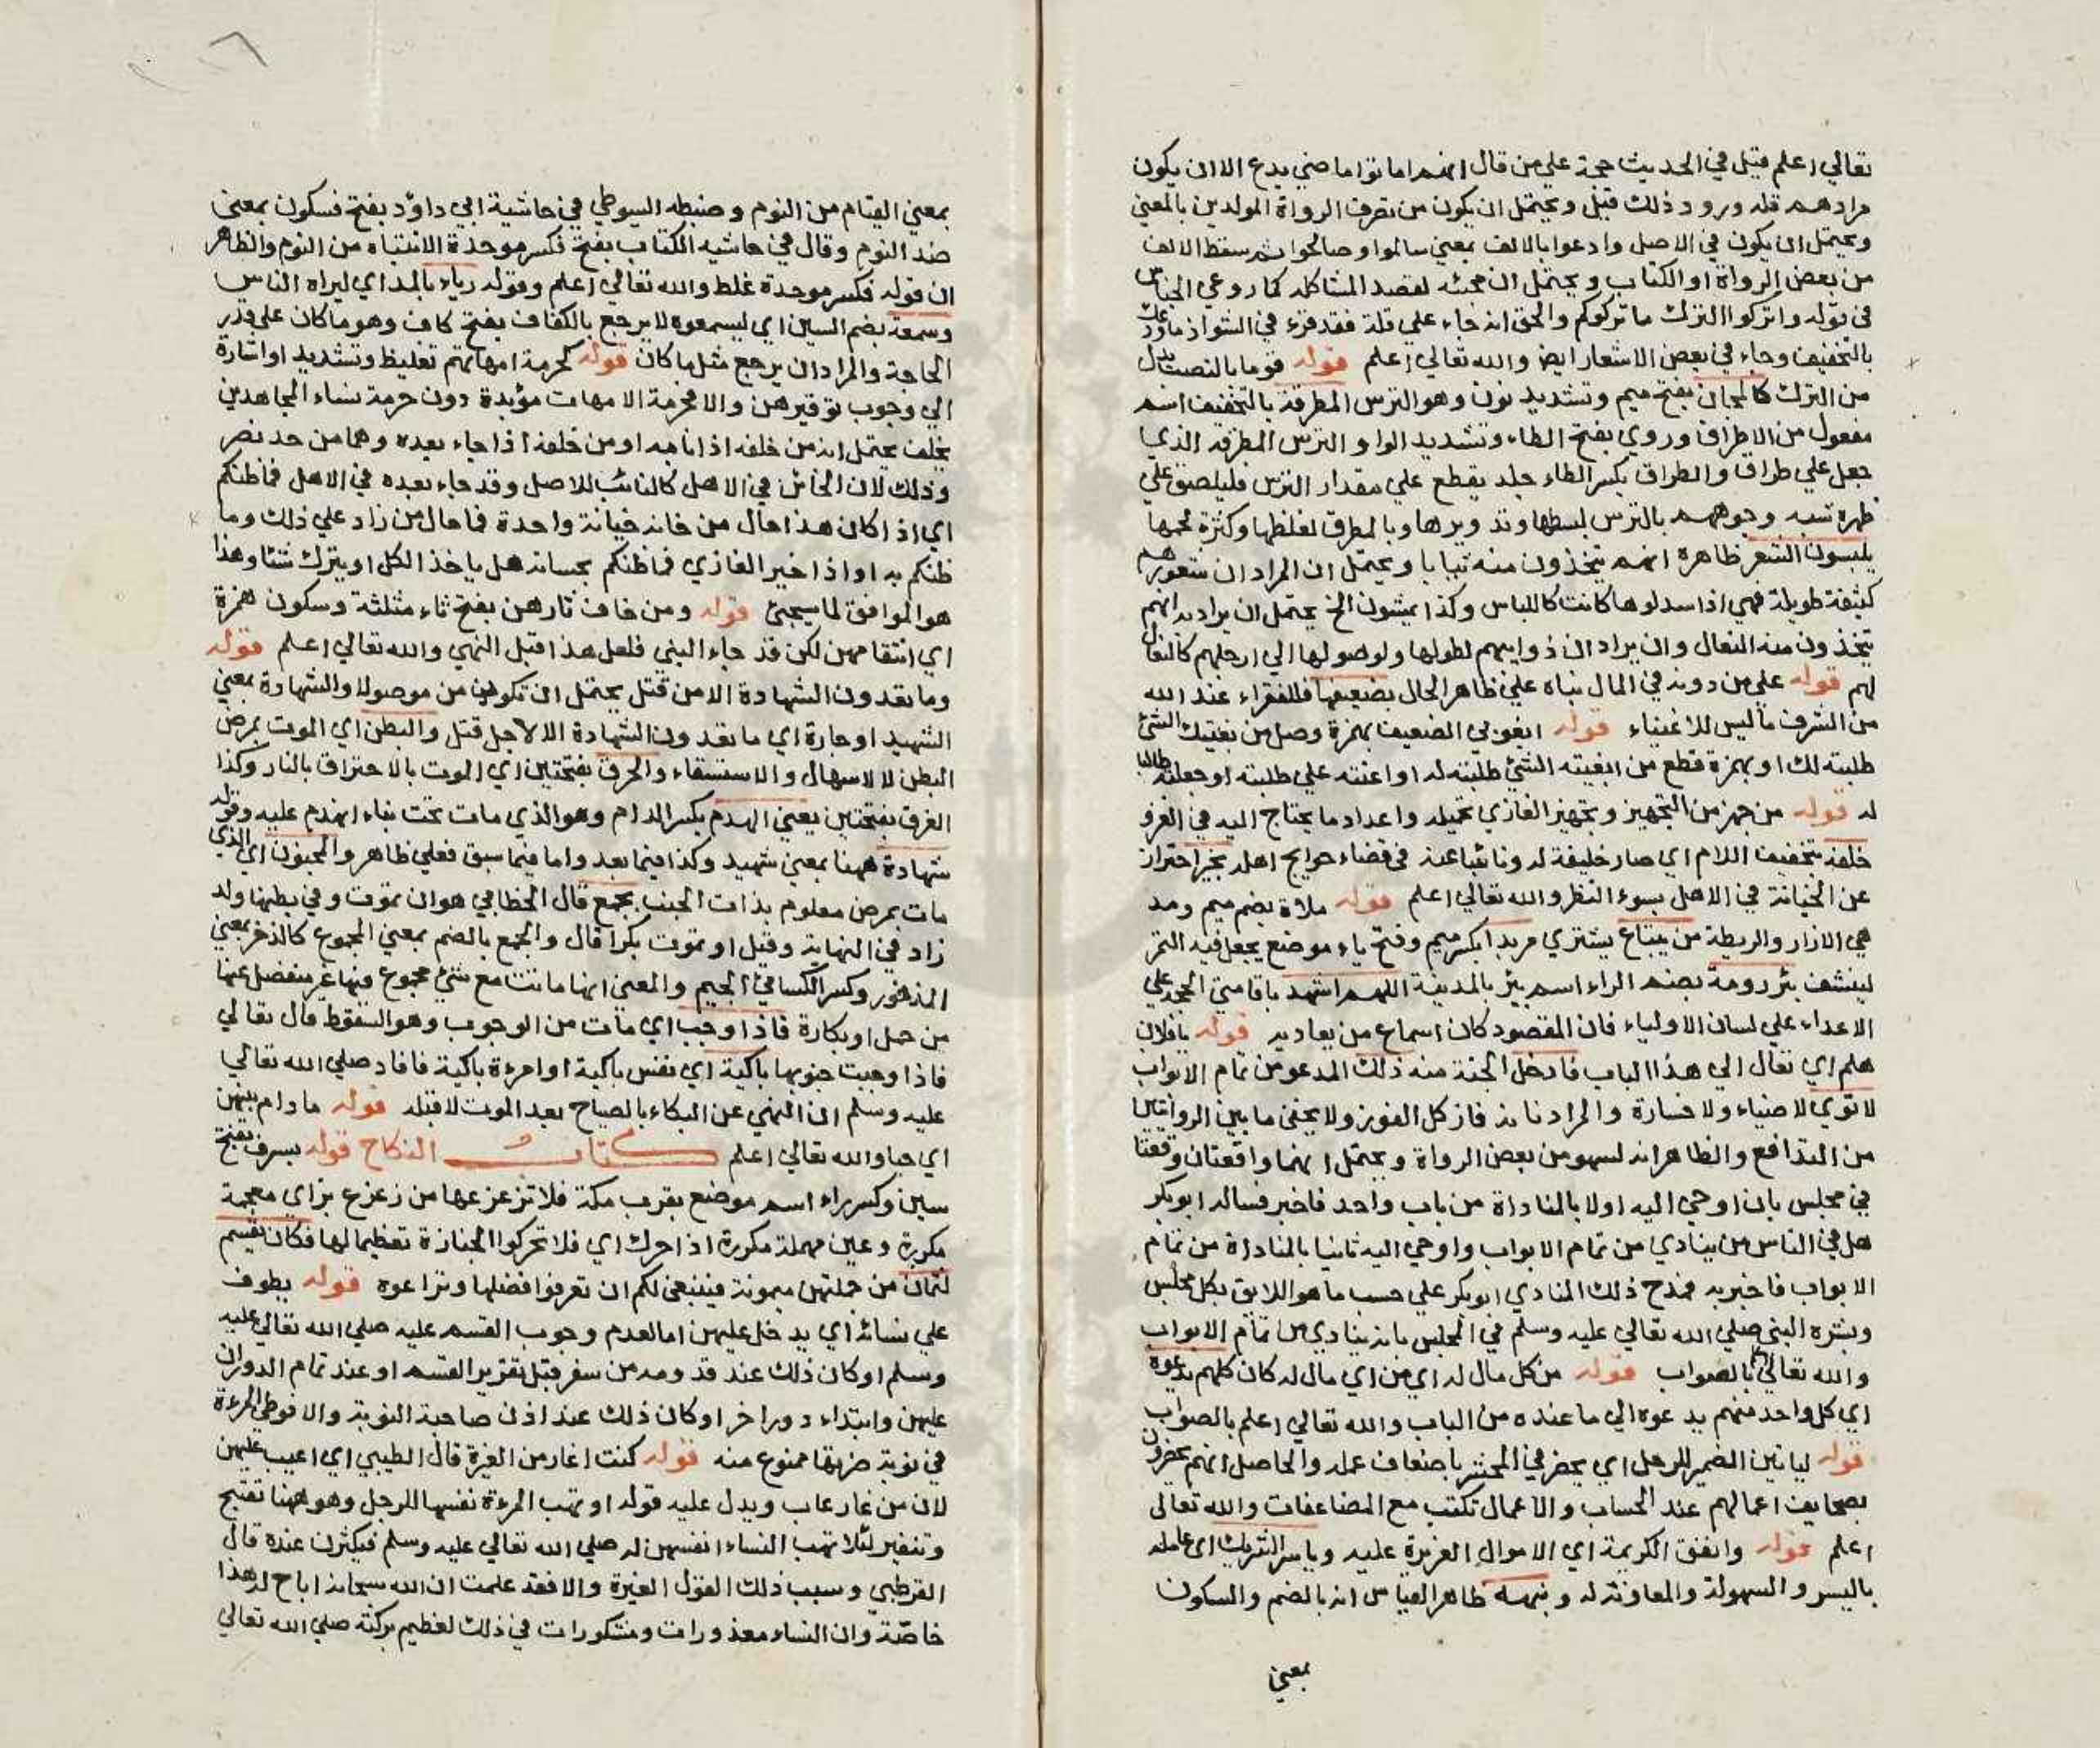 تعالي اعلم قيل في الحديث حجة علي من قال انهم اماتوا ماضي يدع الا ان يكون
مرادهم قلة ورود ذلك قيل ويحتمل ان يكون من تصرف الرواة المولدين بالمعني
ويحتمل ان يكون في الاصل وادعوا بالالف بمعني سالموا وصالحوا ثم سقط الالف
من بعض الرواة او الكتاب ويحتمل ان مجئه لقصد المشاكلة كما روعي الجناس
في قوله واتركوا الترك ما تركوكم والحق انه جاء علي قلة فقد قرء في الشواذ ما ودعك
بالتخفيف وجاء في بعض الاشعار ايض والله تعالي اعلم قوله قوما بالنصب بدل
من الترك كالمجان بفتح ميم وتشديد نون وهو الترس المطرقة بالتخفيف اسم
مفعول من الاطراق وروي بفتح الطاء وتشديد الراء والترس المطرقة الذي
جعل علي طراق والطراق بكسر الطاء جلد يقطع علي مقدار الترس فيلصق علي
ظهره شبه وجوههم بالترس لبسطها وتدويرها وبالمطرق لغلظها وكثرة لحمها
يلبسون الشعر ظاهره انهم يتخذون منه ثيابا ويحتمل ان المراد ان شعورهم
كثيفة طويلة فهي اذا سدلوها كانت كاللباس وكذا يمشون الخ يحتمل ان يراد به انهم
يتخذون منه النعال وان يراد ان ذوايبهم لطولها ولوصولها الي ارجلهم كالنعال
لهم قوله علي من دونه في المال بناه علي ظاهر الحال بضعيفها فللفقراء عند الله
من الشرف ما ليس للاغنياء قوله ابغوني الضعيف بهمزة وصل من بغيتك الشئ
طلبته لك او بهمزة قطع من ابغيته الشئ طلبته له او اعنته علي طلبته او جعلته طالبا
له قوله من جهز من التجهيز وتجهيز الغازي تحميله واعداد ما يحتاج اليه في الغزو
خلفه بتخفيف اللام اي صار خليفة له ونائبا عنه في قضاء حوايج اهله بخير احتراز
عن الخيانة في الاهل بسوء النظر والله تعالي اعلم قوله ملاة بضم ميم ومد
هي الازار والريطة من يبتاع يشتري مربدا بكسر ميم وفتح باء موضع يجعل فيه التمر
لينشف بئر رومة بضم الراء اسم بئر بالمدينة اللهم اشهد باقامتي الحجة علي
الاعداء علي لسان الاولياء فان المقصود كان اسماع من يعاديه قوله يا فلان
هلم اي تعال الي هذا الباب فادخل الجنة منه ذلك المدعو من تمام الابواب
لا توي لا ضياع ولا خسارة والمراد نا به فاز كل الفوز ولا يخفي ما بين الروايتين
من التدافع والظاهر انه لسهو من بعض الرواة ويحتمل انهما واقعتان وقعتا
في مجلس بان اوحي اليه اولا بالمناداة من باب واحد فاخبر فساله ابوبكر
هل في الناس من ينادي من تمام الابواب واوحي اليه ثانيا بالمناداة من تمام
الابواب فاخبر به فمدح ذلك المنادي ابوبكر علي حسب ما هو اللايق بكل مجلس
وبشره النبي صلي الله تعالي عليه وسلم في المجلس بانه ينادي من تمام الابواب
والله تعالي بالصواب قوله من كل مال له اي من اي مال له كان كلهم يدعوه
اي كل واحد منهم يدعوه الي ما عنده من الباب والله تعالي اعلم بالصواب
قوله ليا تين الضمير للرجل اي يحضر في المحشر باضعاف عمله والحاصل انهم يحضرون
بصحايف اعمالهم عند الحساب والاعمال تكتب مع المضاعفات والله تعالي
اعلم قوله وانفق الكريمة اي الاموال العزيزة عليه وياسر الشريك اي عامله
باليسر والسهولة والمعاونة له ونبهه ظاهر القياس انه بالضم والسكون
بمعني
بمعني القيام من النوم وضبطه السيوطي في حاشية ابي داؤد بفتح فسكون بمعني
ضد النوم وقال في حاشيه الكتاب بفتح فكسر موحدة الانتباه من النوم والظاهر
ان قوله فكسر موحدة غلط والله تعالي اعلم وقوله رياء بالمد اي ليراه الناس
وسمعة بضم السين اي ليسمعوه لا يرجع بالكفاف بفتح كاف وهو ما كان علي قدر
الحاجة والمراد ان يرجع مثل ما كان قوله كحرمة امهاتهم تغليظ وتشديد او اشارة
الي وجوب توقيرهن والا فحرمة الامهات مؤبدة دون حرمة نساء المجاهدين
يخلف يحتمل انه من خلفه اذا نابه او من خلفه اذا جاء بعده وهما من حد نصر
وذلك لان الخائن في الاهل كالنائب للاصل وقد جاء بعده في الاهل فما ظنكم
اي اذا كان هذا حال من خانه خيانة واحدة فما حال من زاد علي ذلك وما
ظنكم به او اذا خير الغازي فما ظنكم بحسناته هل ياخذ الكل او يترك شئا وهذا
هو الموافق لما سيجئ قوله ومن خاف ثارهن بفتح ثاء مثلثة وسكون همزة
اي انتقامهن لكن قد جاء النهي فلعل هذا قبل النهي والله تعالي اعلم قوله
وما تعدون الشهادة الا من قتل يحتمل ان تكون من موصولة والشهادة بمعني
الشهيد او جارة اي ما تعدون الشهادة الا لاجل قتل والبطن اي الموت بمرض
البطن لا لاسهال والاستسقاء والحرق بفتحتين اي الموت بالاحتراق بالنار وكذا
الغرق بفتحتين يعني الهدم بكسر الدال وهو الذي مات تحت بناء انهدم عليه وقوله
شهادة ههنا بمعني شهيد وكذا فيما بعد واما فيما سبق فعلي ظاهر والمجنون اي الذي
مات بمرض معلوم بذات الجنب بجمع قال الخطابي هو ان تموت وفي بطنها ولد
زاد في النهاية وقيل او تموت بكرا قال والجمع بالضم بمعني المجموع كالذخر بمعني
المذخور وكسر الكسائي الجيم والمعني انها ماتت مع شئ مجموع فيها غير منفصل عنها
من حمل او بكارة فاذا وجب اي مات من الوجوب وهو السقوط قال تعالي
فاذا وجبت جنوبها باكية اي نفس باكية او امرءة باكية فافاد صلي الله تعالي
عليه وسلم ان النهي عن البكاء بالصياح بعد الموت لا قبله قوله مادام بينهن
اي حيا والله تعالي اعلم كتاب النكاح قوله بسرف بفتح
سين وكسر راء اسم موضع بقرب مكة فلا تزعزعها من زعزع بزاي معجمة
مكررة وعين مهملة مكررة اذا حرك اي فلا تحركوا الجنازة تعظيما لها فكان يقسم
لثمان من جملتهن ميمونة فينبغي لكم ان تعرفوا فضلها وتراعوه قوله يطوف
علي نسائه اي يدخل عليهن اما لعدم وجوب القسم عليه صلي الله تعالي عليه
وسلم او كان ذلك عند قدومه من سفر قبل تقرير القسم او عند تمام الدوران
عليهن وابتداء دور اخر او كان ذلك عند اذن صاحبة النوبة والا فوطي المرءة
في نوبة ضرتها ممنوع منه قوله كنت اغار من الغيرة قال الطيبي اي اعيب عليهن
لان من غار عاب ويدل عليه قوله او تهب المرءة نفسها للرجل وهو ههنا تقبيح
وتنفير لئلا تهب النساء انفسهن له صلي الله تعالي عليه وسلم فيكثرن عنده قال
القرطبي وسبب ذلك القول الغيرة والا فقد علمت ان الله سبحانه اباح له هذا
خاصّة وان النساء معذورات ومشكورات في ذلك لعظيم بركته صلي الله تعالي